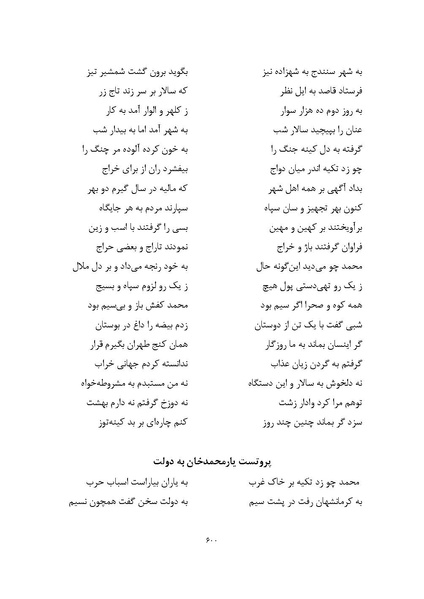 به شهر سنندج به شهزاده نیز بگوید برون گشت شمشیر تیز
فرستاد قاصد به ایل نظر که سالار بر سر زند تاج زر
به روز دوم ده هزار سوار ز کلهر و الوار آمد به کار
عنان را بپیچید سالار شب به شهر آمد اما به بیدار شب
گرفته به دل کینه جنگ را به خون کرده آلوده مر چنگ را
چو زد تکیه اندر میان دواج بیفشرد ران از برای خراج
بداد آگهی بر همه اهل شهر که مالیه در سال گیرم دو بهر
کنون بهر تجهیز و سان سپاه سپارند مردم به هر جایگاه
برآویختند بر کهین و مهین بسی را گرفتند با اسب و زین
فراوان گرفتند باژ و خراج نمودند تاراج و بعضی حراج
محمد چو می‌دید این‌گونه حال به خود رنجه می‌داد و بر دل ملال
ز یک رو تهی‌دستی پول هیچ ز یک رو لزوم سپاه و بسیج
همه کوه و صحرا اگر سیم بود محمد کفش باز و بی‌سیم بود
شبی گفت با یک تن از دوستان زدم بیضه را داغ در بوستان
گر اینسان بماند به ما روزگار همان کنج طهران بگیرم قرار
گرفتم به گردن زیان عذاب ندانسته کردم جهانی خراب
نه دلخوش به سالار و این دستگاه نه من مستبدم به مشروطه‌خواه
توهم مرا کرد وادار زشت نه دوزخ گرفتم نه دارم بهشت
سزد گر بماند چنین چند روز کنم چاره‌ای بر بد کینه‌توز
پروتست یارمحمدخان به دولت
محمد چو زد تکیه بر خاک غرب به یاران بیاراست اسباب حرب
به کرمانشهان رفت در پشت سیم به دولت سخن گفت همچون نسیم
۶۰۰